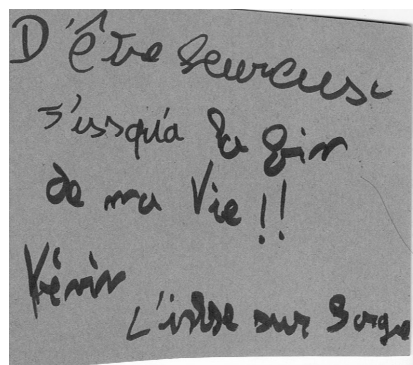 D'être heureuse
jusqu'à la fin
de ma Vie !!
L'isle sur Sorgue